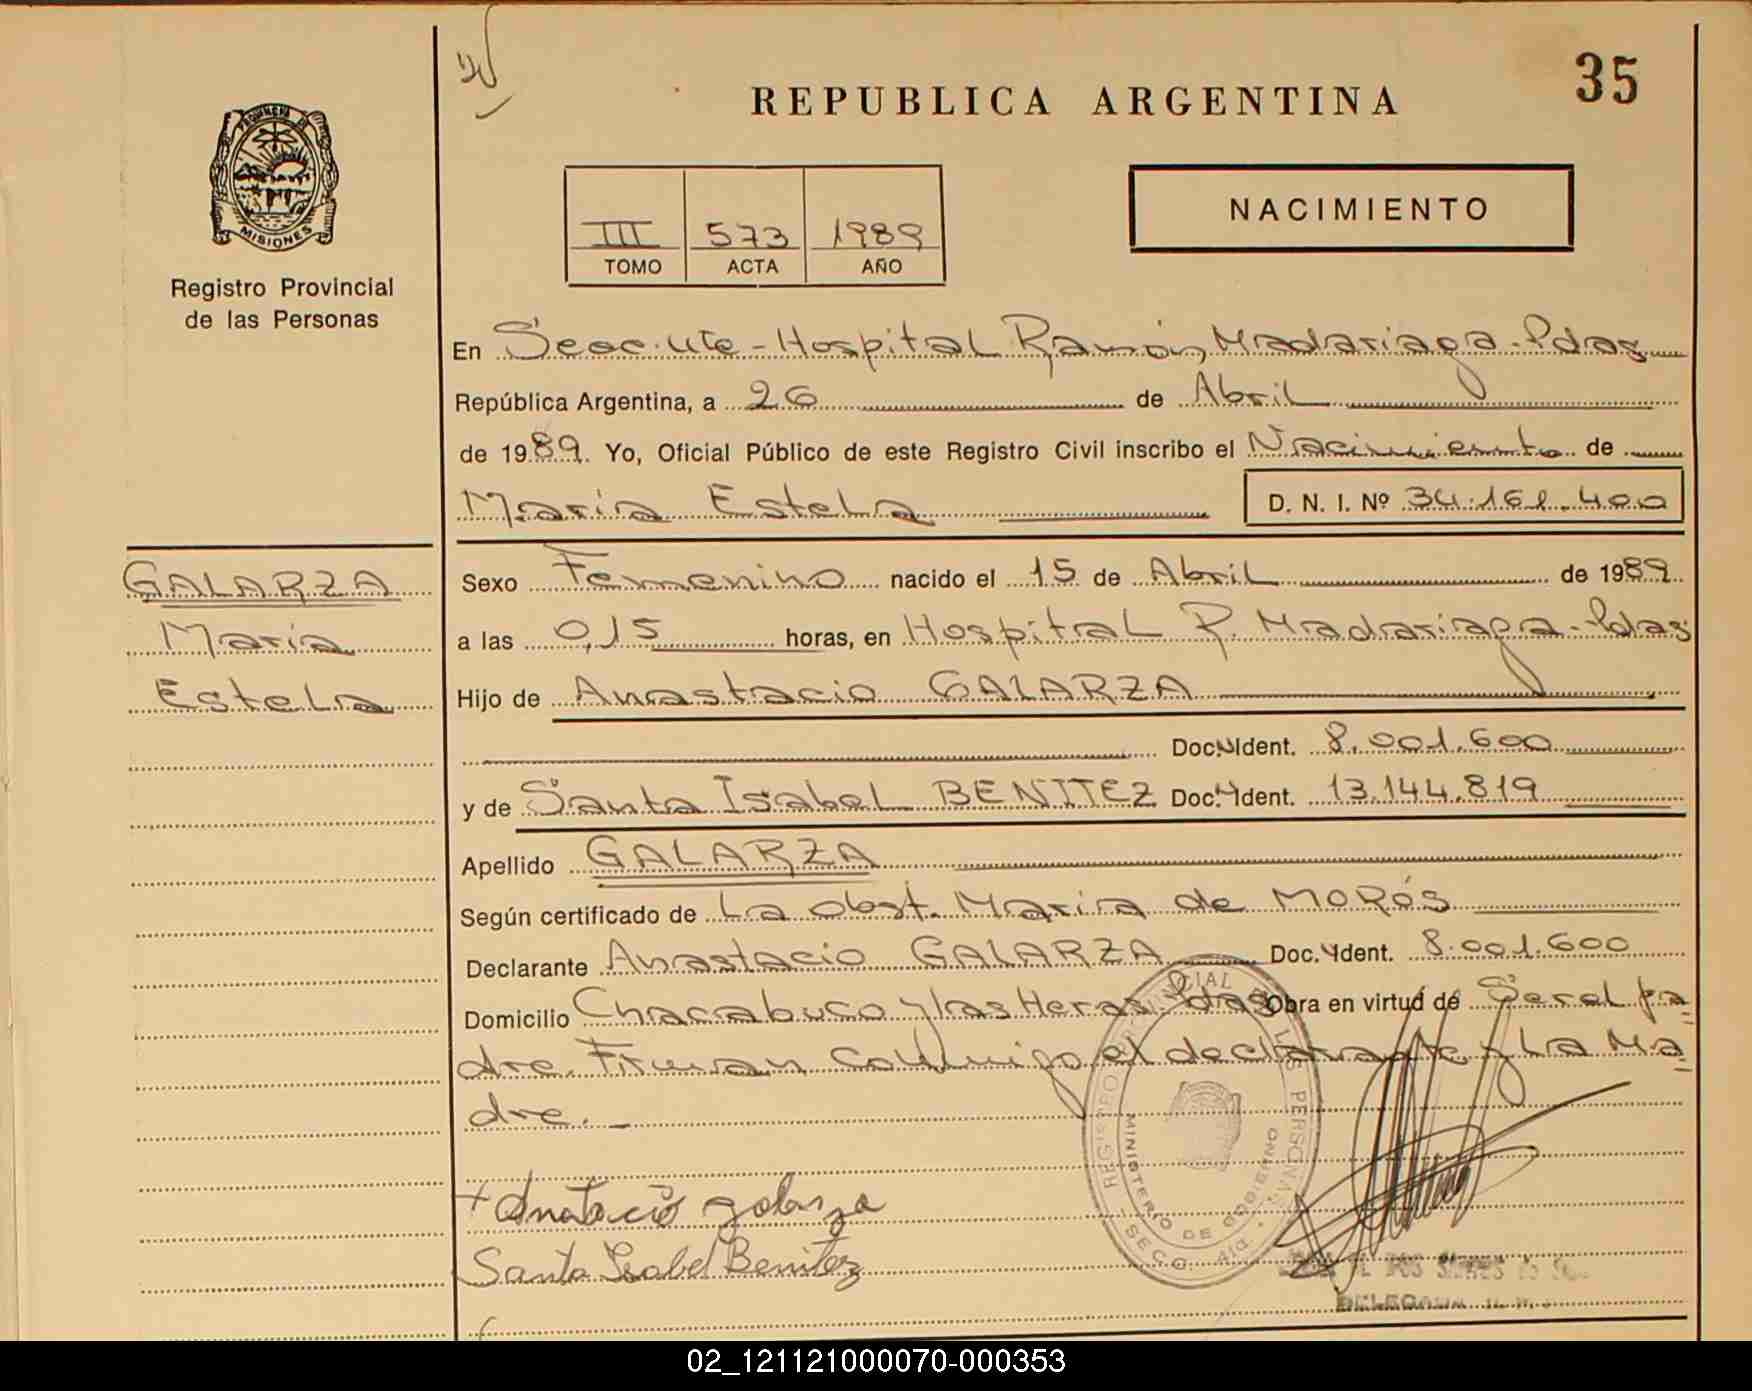 35
REPUBLICA ARGENTINA
PROVINCIA DE
MISIONES
Registro Provincial
de las Personas
NACIMIENTO
III 573 1989
TOMO ACTA AÑO
En Secc. Hospital Ramón Madariaga - Pdas
República Argentina, a 26 de Abril
de 1989. Yo, Oficial Público de este Registro Civil inscribo el Nacimiento de
María Estela D. N. I. Nº 34.161.400
GALARZA
María
Estela
Sexo Femenino nacido el 15 de Abril de 1989
a las 0,15 horas, en Hospital R. Madariaga - Pdas
Hijo de Anastacio GALARZA
Doc. Ident. 8.001.600
y de Santa Isabel BENITEZ Doc. Ident. 13.144.819
Apellido GALARZA
Según certificado de La obst. Maria de MORÓS
Declarante Anastacio GALARZA Doc. Ident. 8.001.600
Domicilio Chacabuco y las Heras - Pdas Obra en virtud de Ser el pa
dre. Firman conmigo el declarante y La Ma
dre. -
REGISTRO PROVINCIAL DE LAS PERSONAS
MINISTERIO DE GOBIERNO
+ Anatacio galarza
Santa Isabel Benitez
DELEGADA
02_121121000070-000353